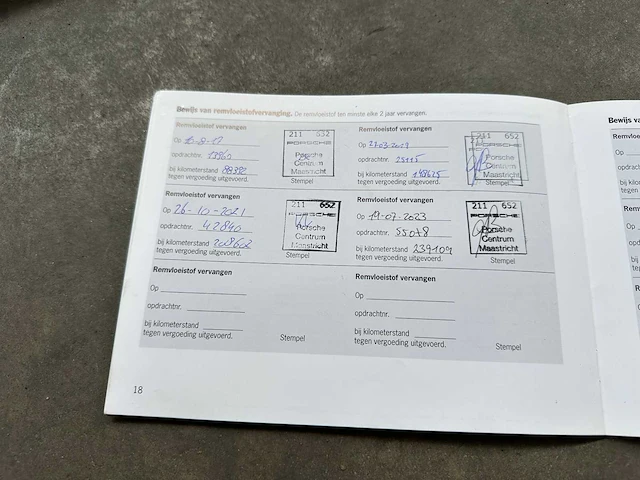 Bewijs van remvloeistofvervanging. De remvloeistof ten minste elke 2 jaar vervangen.
Remvloeistof vervangen
Op
opdrachtnr.
bij kilometerstand
tegen vergoeding uitgevoerd.
211
PORSCHE
Porsche
Centrum
Maastricht
Stempel
Remvloeistof vervangen
Op 27-03-2019
opdrachtnr. 25115
bij kilometerstand 198625
tegen vergoeding uitgevoerd.
211 652
PORSCHE
Porsche
Centrum
Maastricht
Stempel
Remvloeistof vervangen
Op 26-10-2021
opdrachtnr. 42840
bij kilometerstand 208602
tegen vergoeding uitgevoerd.
211 652
PORSCHE
Porsche
Centrum
Maastricht
Stempel
Remvloeistof vervangen
Op 19-07-2023
opdrachtnr. 55078
bij kilometerstand 239109
tegen vergoeding uitgevoerd.
211 652
PORSCHE
Porsche
Centrum
Maastricht
Stempel
Remvloeistof vervangen
Op
opdrachtnr.
bij kilometerstand
tegen vergoeding uitgevoerd.
Stempel
Remvloeistof vervangen
Op
opdrachtnr.
bij kilometerstand
tegen vergoeding uitgevoerd.
Stempel
18
Bewijs va